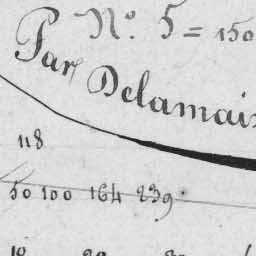 N° 5 = 150
Par Delamai
118
50 100 164 239